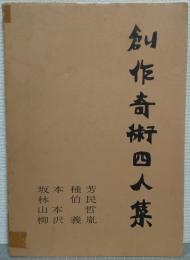 創作奇術四人集
坂本種芳
林 伯民
山本 哲
柳沢義胤